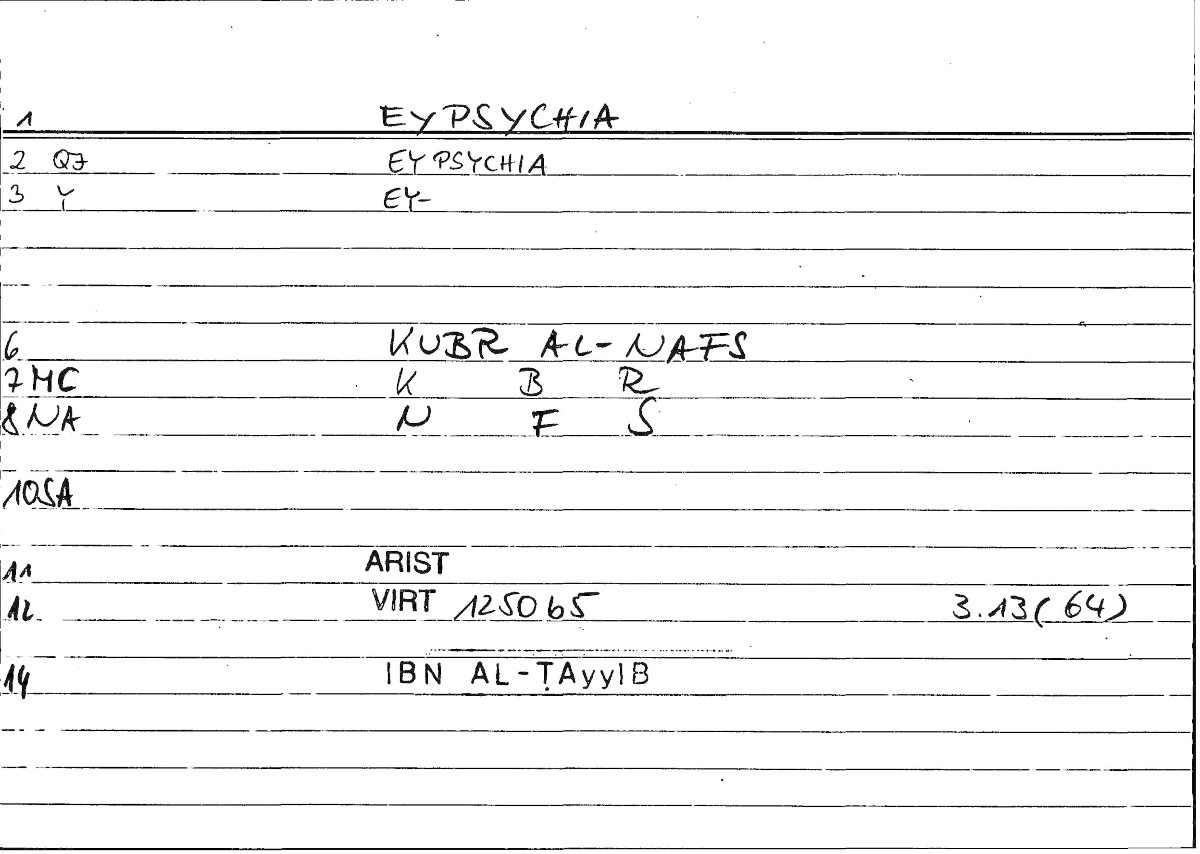 1 EYPSYCHIA
2 QJ EYPSYCHIA
3 Y EY-
6 KUBR AL-NAFS
7 MC K B R
8 NA N F S
10 SA
11 ARIST
12 VIRT 1250b5 3.13(64)
14 IBN AL-ṬAyyIB